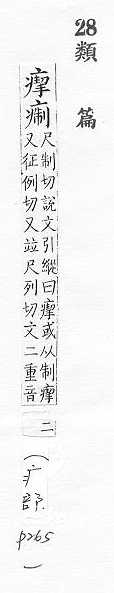 28
類篇
痸
尺制切說文引縱曰或从制
又征例切又竝尺列切文二重音
二
(疒部 p265)